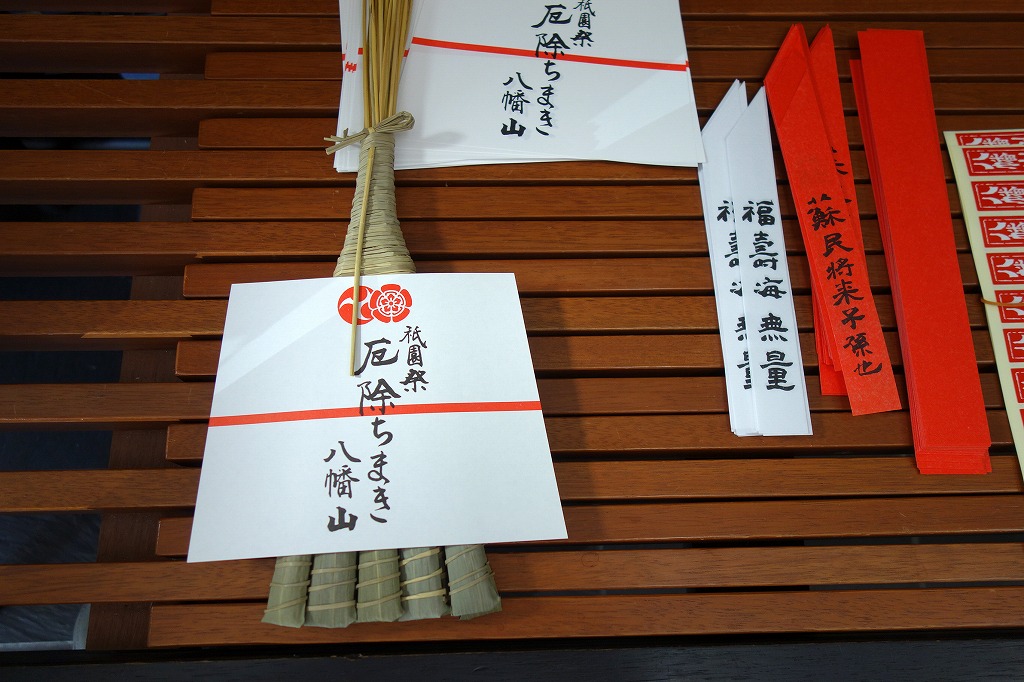 祇園祭
厄除ちまき
八幡山
祇園祭
厄除ちまき
八幡山
福壽海無量
福壽海無量
蘇民将来子孫也